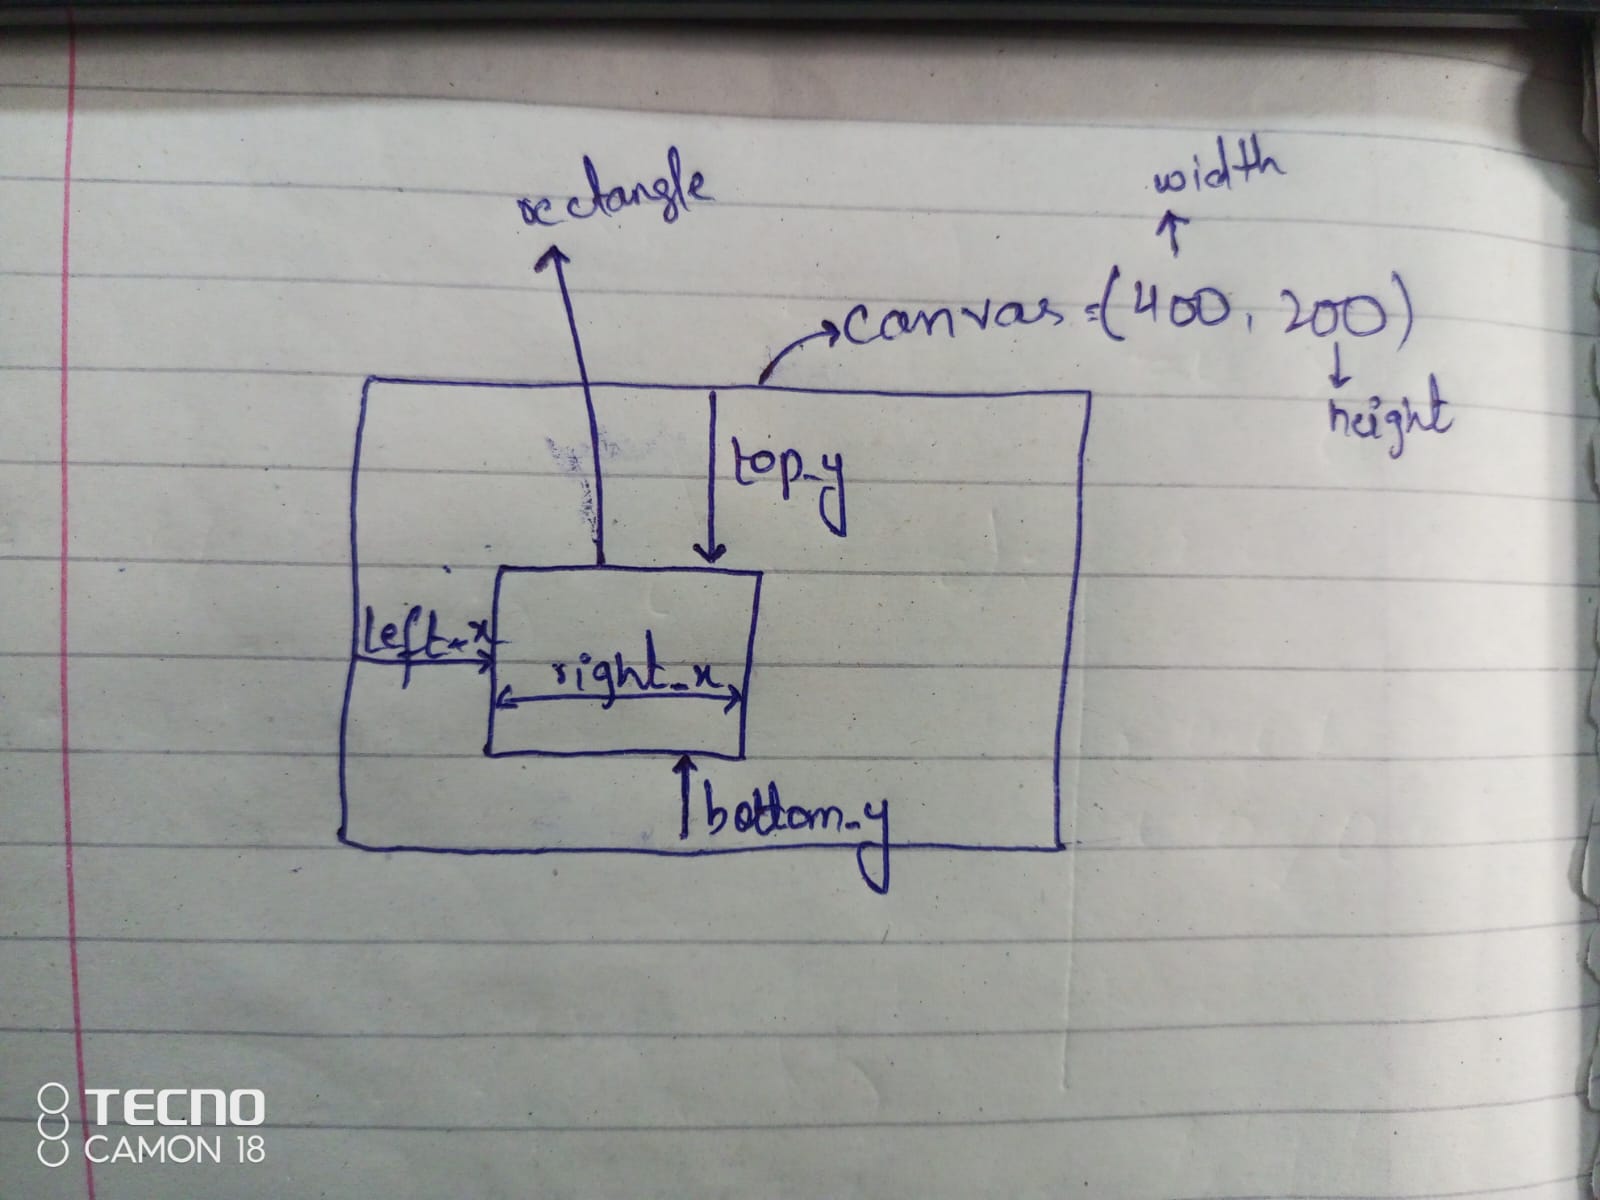 rectangle
width
canvas = (400, 200)
height
top-y
left-x
right-x
bottom-y
TECNO
CAMON 18